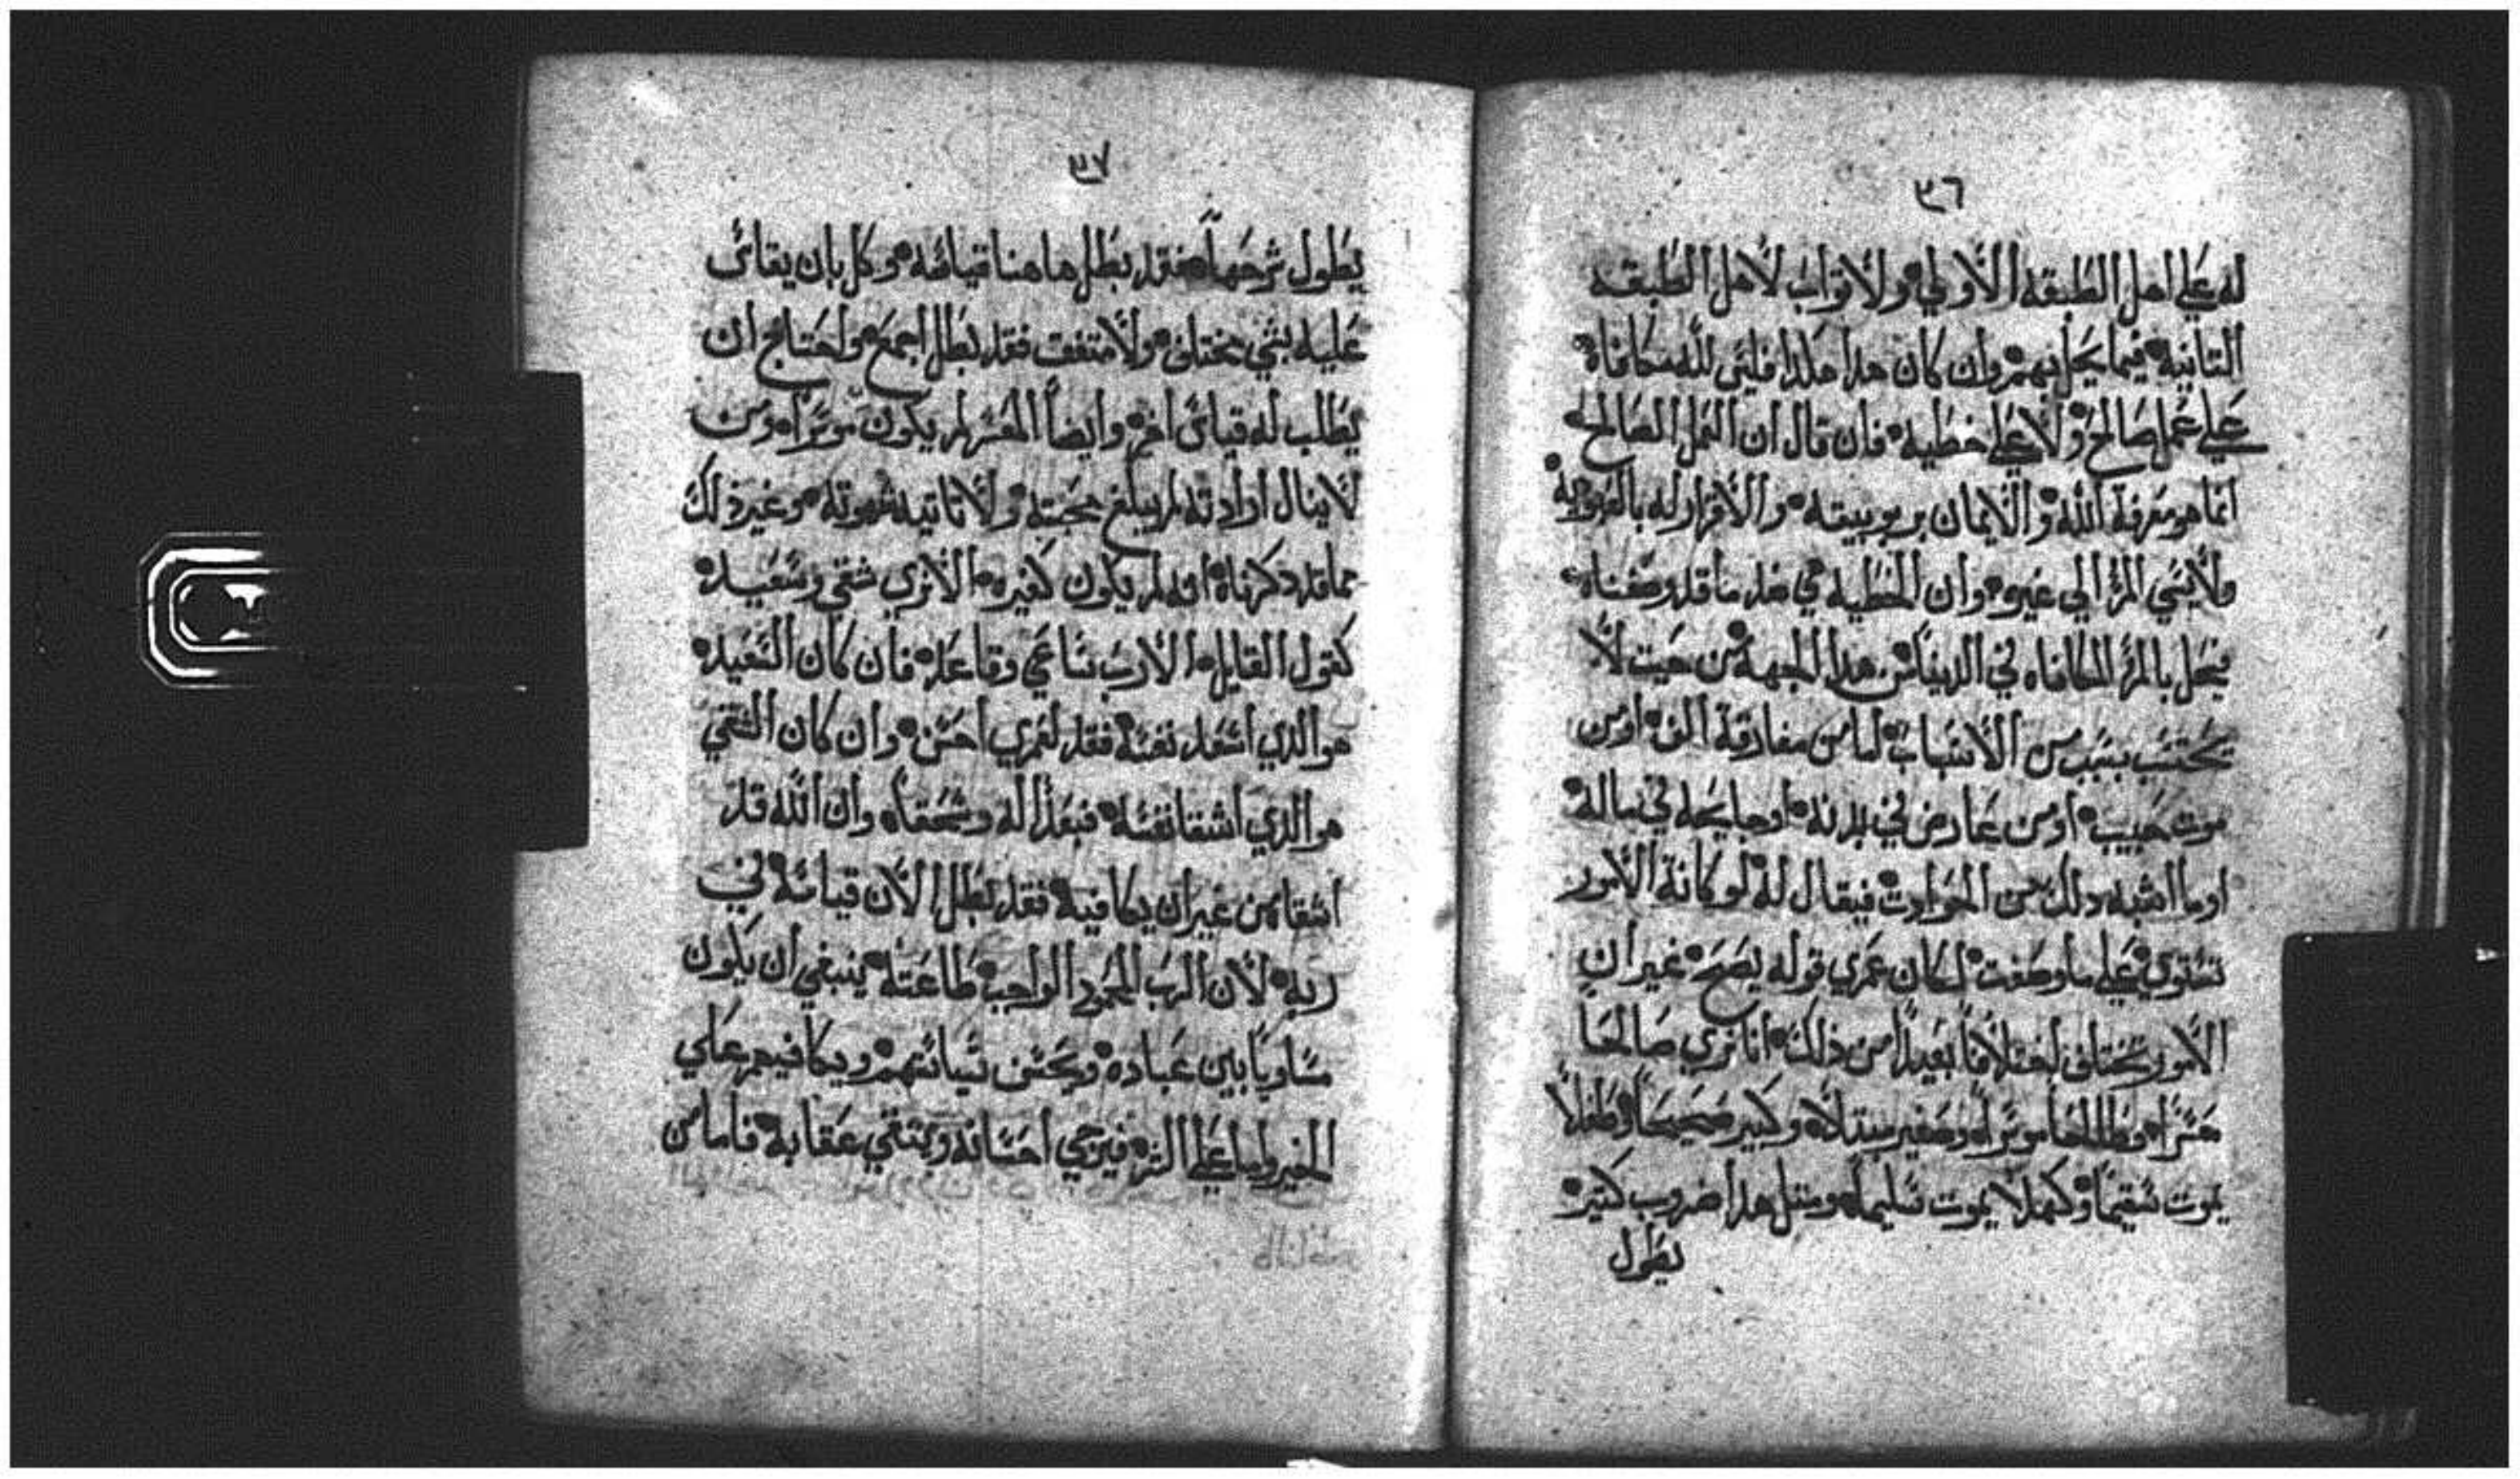 ٣٦
له علي اهل الطبقه الاولي ولا ثواب لاهل الطبقه
التانيه فيما يحل بهم وان كان هدا هكدا فلئي لله مكافاه
علي عمل صالح ولا علي خطيه فان قال ان العمل الصالح
انما هو معرفة الله والايمان بربوبيته والاقرار له بالعبوديه
ولا ينبغي المرُ الي غيره وان الخطيه هي ضد ما قد وصفناه
يحل بالمرُ المكافاه في الدنيا من هدا الجهة من حيت لا
يحتسب بسبب من الاسباب اما من مفارقة الف او من
موت حبيب او من عارض في بدنه او جايحه في ماله
او ما اشبه دلك من الحوادت فيقال له لو كانة الامور
تستوي علي ما وصفت لكان عمري قوله يصح غير ان
الامور تختلف اختلافاً بعيداً من ذلك انا نري صالحا
معتراً وطالحاً موتراً وصغير مبتلا وكبير صحيحاً وطفلاً
يموت سقيماً وكهلا يموت سليماً ومتل هدا ضروب كتيره
يطول
٣٧
يطول شرحهاً فقد بطل هاهنا قياسه وكل بان يقاس
عليه بشي مختلف ولا متفق فقد بطل اجمع واحتاج ان
يطلب له قياس اخر وايضاً المعتر لم يكون موتراً ومن
لا ينال ارادته لم يبلغ محبته ولا تاتيه شهوته وغير ذلك
مما قد دكرناه انه لم يكون كغيره الا نري شقي وسعيد
كقول القايل الا رب ساعي وقاعد فان كان السعيد
هو الذي اسعد نفسه فقد لعمري احسن وان كان الشقي
هو الدي اشقا نفسه فبعداً له وسحقاً وان الله قد
اشقاه من غير ان يكافيه فقد بطل الان قياسه في
ربه لان الرب المحمود الواجب طاعته ينبغي ان يكون
مساوياً بين عباده ويحسن سياستهم ويكافيهم علي
الخير واما علي الشر فيرجي احسانه ويتقي عقابه فاما من